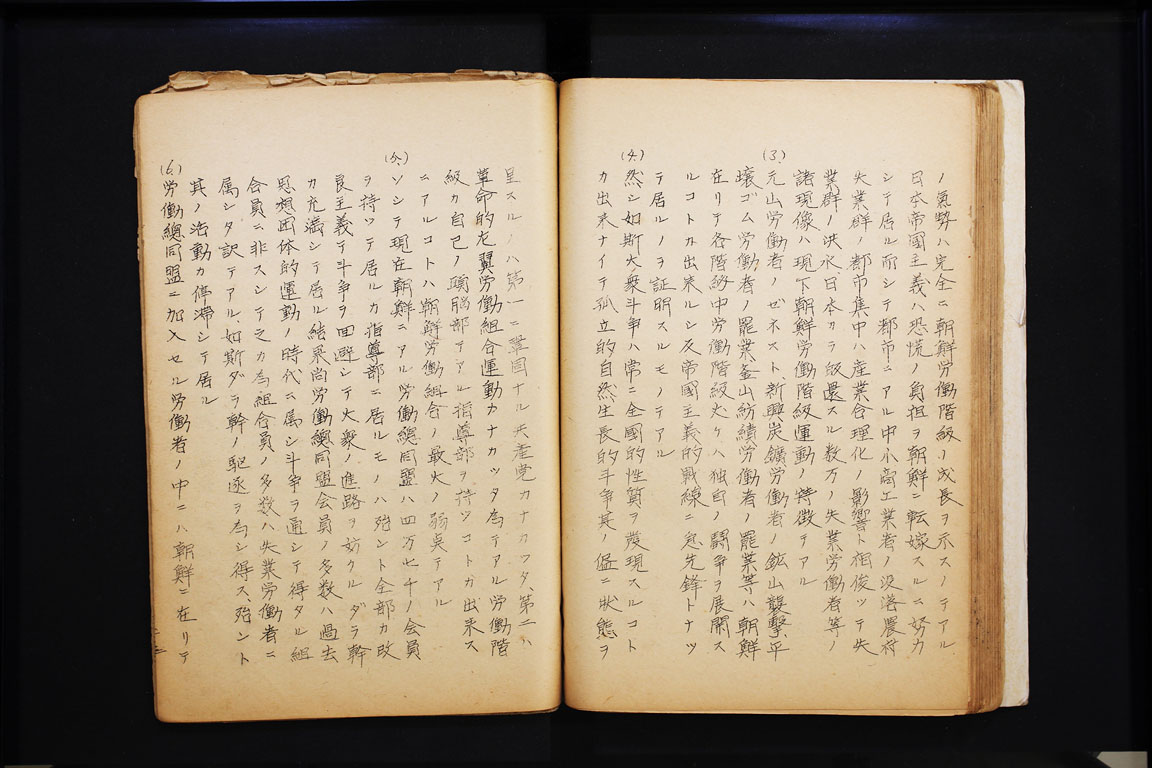 ノ氣勢ハ完全ニ朝鮮労働階級ノ成長ヲ示スノテアル
日本帝國主義ハ恐慌ノ負担ヲ朝鮮ニ転嫁スルニ努力
シテ居ル而シテ都市ニアル中小商工業者ノ没落農村
失業群ノ都市集中ハ産業合理化ノ影響ト相俟ツテ失
業群ノ洪水日本カラ皈還スル数万ノ失業労働者等ノ
諸現像ハ現下朝鮮労働階級運動ノ特徴テアル
(3.)
元山労働者ノゼネスト、新興炭鑛労働者ノ鉱山襲撃平
壌ゴム労働者ノ罷業釜山紡績労働者ノ罷業等ハ朝鮮
在リテ各階級中労働階級丈ケハ独自ノ闘争ヲ展開ス
ルコトカ出来ルシ反帝國主義的戦線ニ急先鋒トナツ
テ居ルノヲ証明スルモノテアル
(4.)
然シ如斯大衆斗争ハ常ニ全國的性質ヲ発現スルコト
カ出来ナイテ孤立的自然生長的斗争其ノ侭ニ状態ヲ
呈スルノハ第一ニ鞏固ナル共産党カナカツタ第二ハ
革命的左翼労働組合運動カナカツタ為テアル労働階
級カ自己ノ頭脳部テアル指導部ヲ持ツコトカ出来ス
ニアルコトハ朝鮮労働組合ノ最大ノ弱点テアル
(5.)
ソシテ現在朝鮮ニアル労働總同盟ハ四万七千ノ会員
ヲ持ツテ居ルカ指導部ニ居ルモノハ殆ント全部カ改
良主義テ斗争ヲ回避シテ大衆ノ進路ヲ妨クルダラ幹
カ充満シテ居ル結果尚労働總同盟会員ノ多数ハ過去
思想団体的運動ノ時代ニ属シ斗争ヲ通シテ得タル組
合員ニ非スシテ之カ為組合員ノ多数ハ失業労働者ニ
属シタ訳テアル如斯ダラ幹ノ駆逐ヲ為シ得ス殆ント
其ノ活動カ停滞シテ居ル
(6.)
労働總同盟ニ加入セル労働者ノ中ニハ朝鮮ニ在リテ